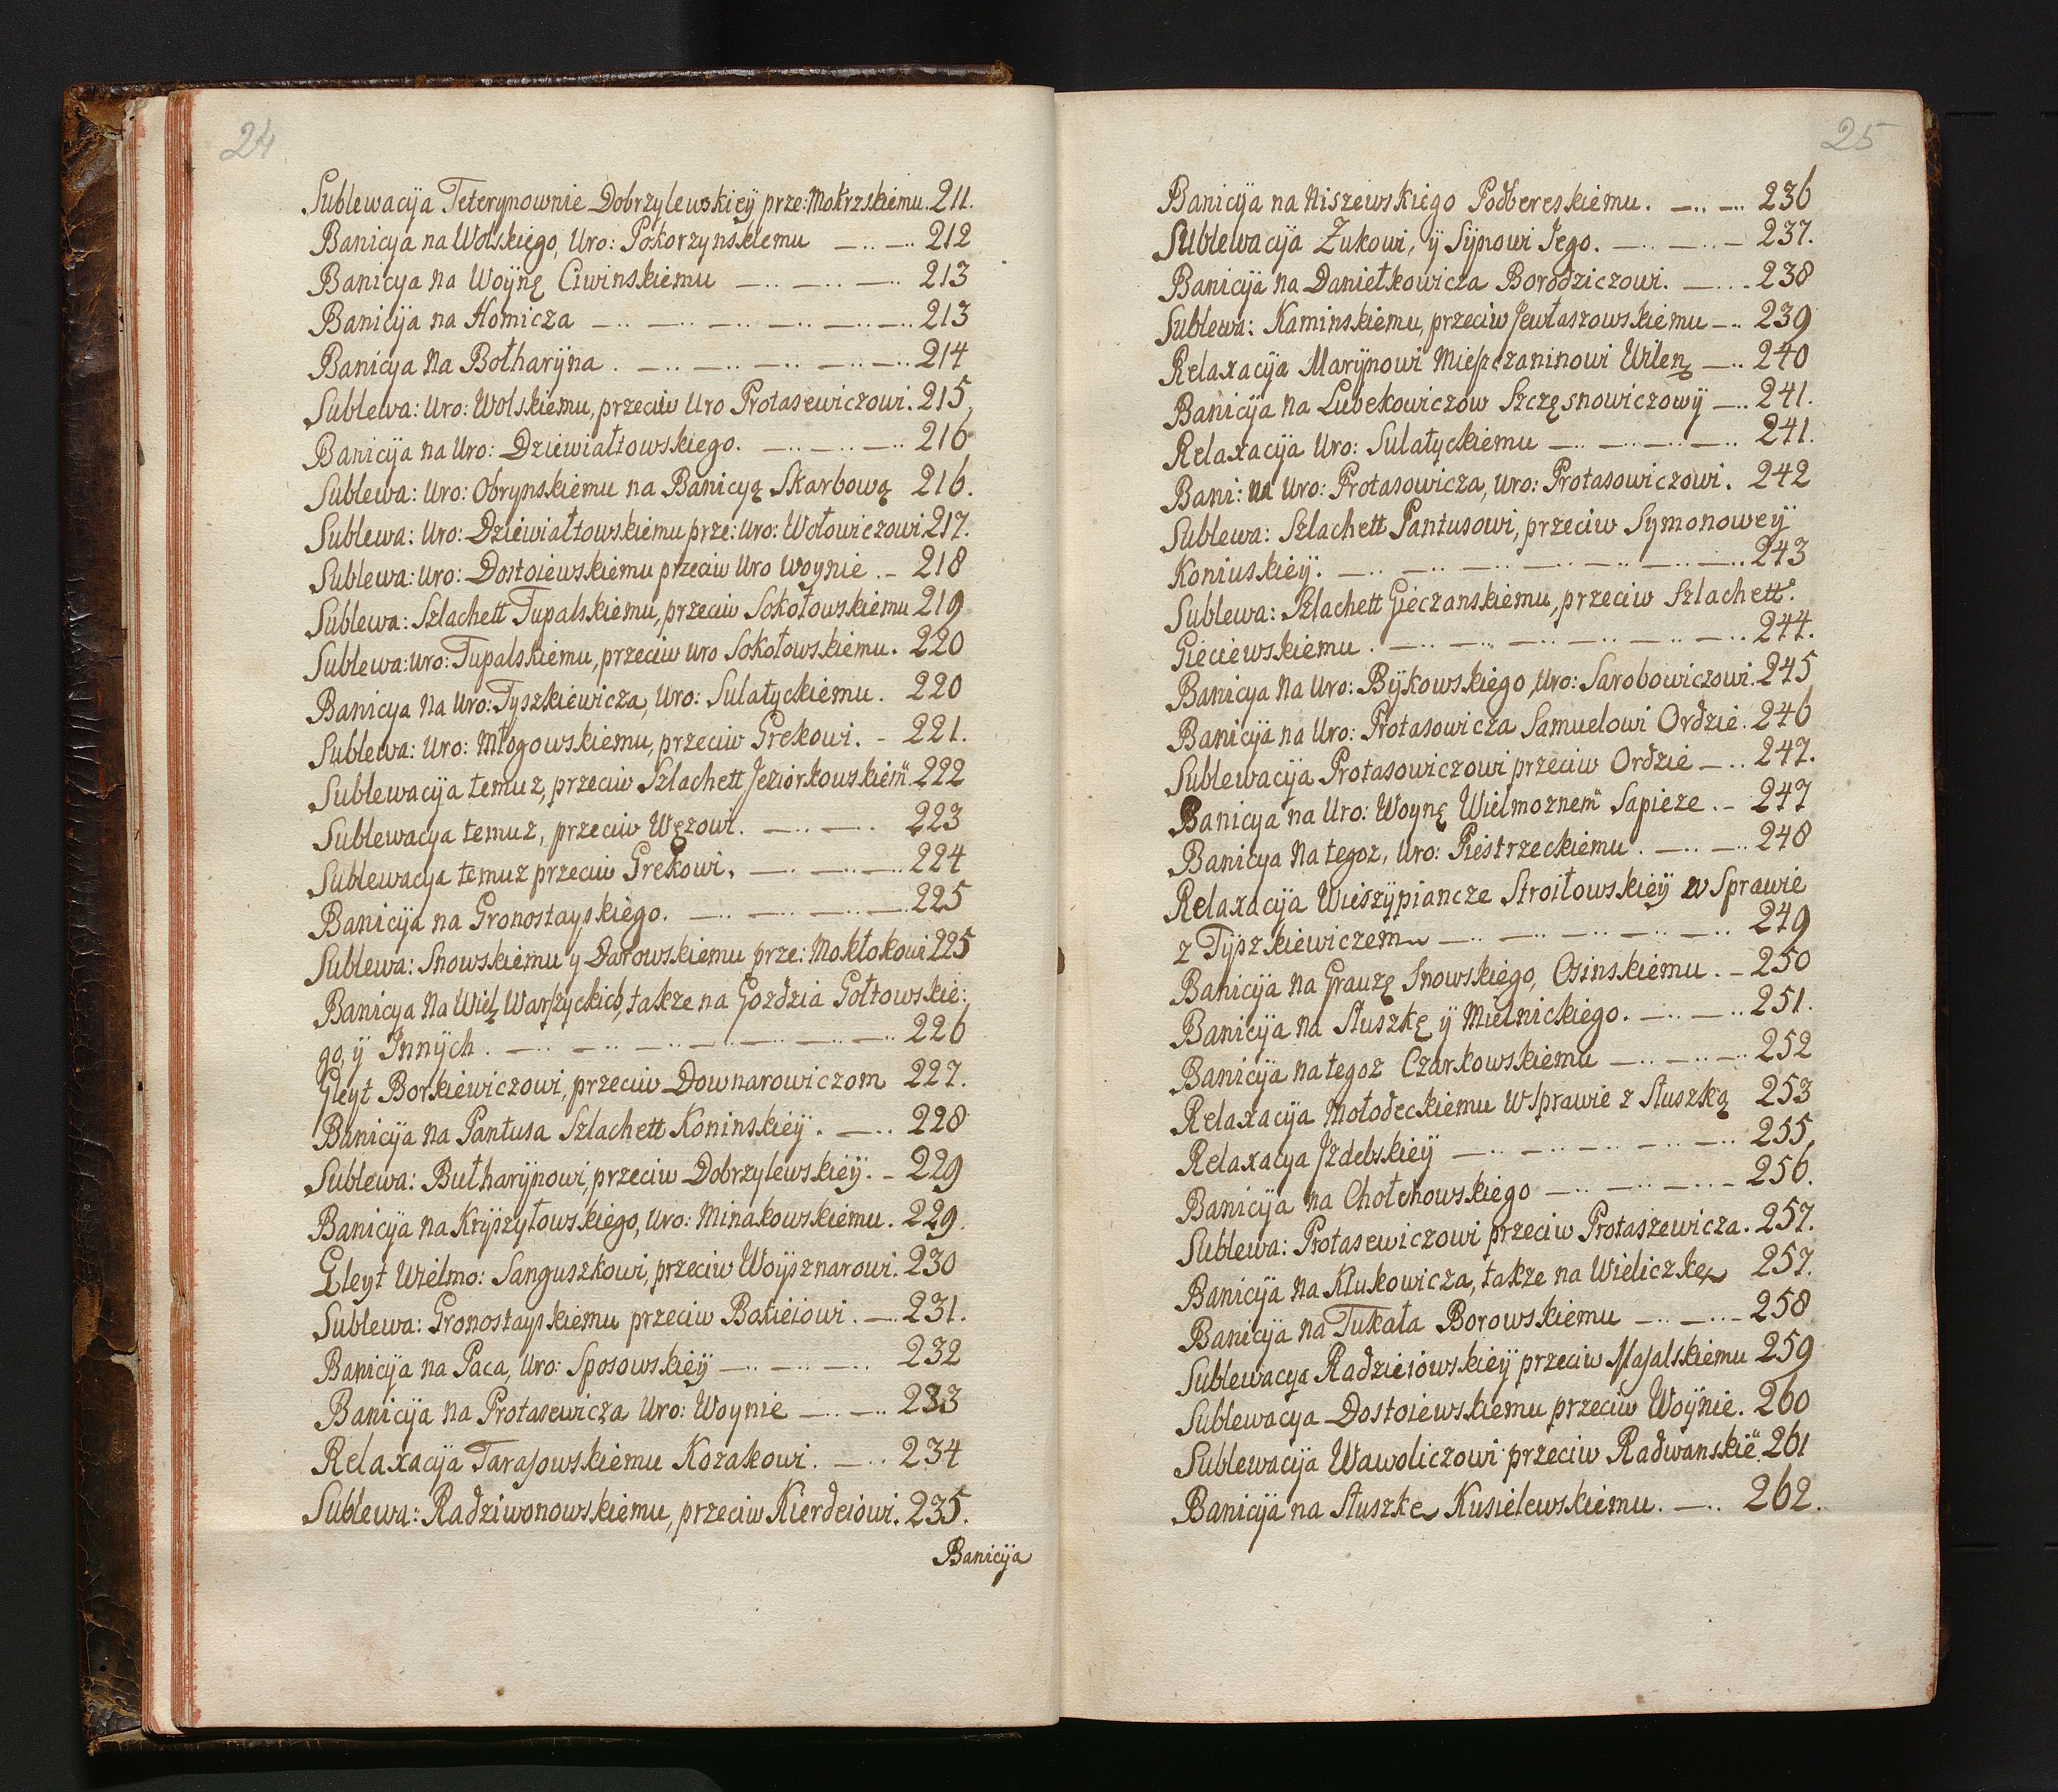 24
Sublewacÿa Teterynownie Dobrzylewskiey prze: Mokrzskiemu. 211.
Banicya na Wolskiego, Uro: Pokorzynskiemu — .. — .. 212
Banicya na Woÿnę Ciwinskiemu — .. — .. — .. 213
Banicÿa na Homicza — .. — .. — .. — .. — .. — .. 213
Banicya na Bołharÿna . — .. — .. — .. — .. — .. 214
Sublewa: Uro: Wolskiemu, przeciw Uro Protasewiczowi. 215
Banicÿa na Uro: Dziewiałtowskiego. — .. — .. — .. 216
Sublewa: Uro: Obrynskiemu na Banicyą Skarbową 216.
Sublewa: Uro: Dziewiałtowskiemu prze: Uro: Wołowiczowi 217.
Sublewa: Uro: Dostoiewskiemu przeciw Uro Woynie . - 218
Sublewa: Szlachett Tupalskiemu, przeciw Sokołowskiemu 219
Sublewa: Uro: Tupalskiemu, przeciw Uro Sokołowskiemu. 220
Banicya na Uro: Tyszkiewicza, Uro: Sulatyckiemu. 220
Sublewa: Uro: Młogowskiemu, przeciw Grekowi. - 221.
Sublewacÿa temuz, przeciw Szlachett Jeziorkowskiem. 222
Sublewacya temuz, przeciw Węzowi. — .. — .. 223
Sublewacya temuz przeciw Grekowi. — .. — .. — .. 224
Banicÿa na Gronostayskiego. — .. — .. — .. — 225
Sublewa: Snowskiemu y Darowskiemu prze: Mokłokowi 225
Banicya na Wiel Warszyckich, takze na Gozdzia Gołtowskie:
go, ÿ Innÿch . — .. — .. — .. — .. — .. — .. 226
Gleyt Borkiewiczowi, przeciw Downarowiczom 227.
Banicÿa na Pantusa Szlachett Koninskieÿ. — .. 228
Sublewa: Bułharÿnowi, przeciw Dobrzylewskieÿ. - 229
Banicÿa na Krÿszyłowskiego, Uro: Minakowskiemu. 229.
Gleyt Wielmo: Sanguszkowi, przeciw Woÿsznarowi. 230
Sublewa: Gronostayskiemu przeciw Bokieiowi. — .. 231.
Banicÿa na Paca, Uro: Sposowskieÿ — .. — .. — .. 232
Banicÿa na Protasewicza Uro: Woynie — .. — .. 233
Relaxacÿa Tarasowskiemu Kozakowi. — .. 234
Sublewa: Radziwonowskiemu, przeciw Kierdeiowi. 235.
Banicÿa
25
Banicÿa na Niszewskiego Podbereskiemu. — .. — .. 236
Sublewacÿa Zukowi, ÿ Sÿnowi Jego. — .. — .. — 237.
Banicÿa na Daniełkowicza Borodziczowi. — . . - 238
Sublewa: Kaminskiemu, przeciw Jewłaszowskiemu — .. 239
Relaxacÿa Marÿnowi Mieszczaninowi Wilen — .. 240
Banicÿa na Lubekowiczow Szczęsnowiczowÿ — .. 241.
Relaxacÿa Uro: Sulatyckiemu — .. — .. — .. — .. 241.
Bani: na Uro: Protasowicza, Uro: Protasowiczowi. 242
Sublewa: Szlachett Pantusowi, przeciw Symonoweÿ
Koniuskieÿ. — .. — .. — .. — .. — .. — .. — .. 243
Sublewa: Szlachett Gieczanskiemu, przeciw Szlachett:
Gieciewskiemu . — .. — .. — .. — .. — .. — .. 244.
Banicya na Uro: Bÿkowskiego, Uro: Sarobowiczowi. 245
Banicÿa na Uro: Protasowicza Samuelowi Ordzie. 246
Sublewacÿa Protasowiczowi przeciw Ordzie — .. 247.
Banicya na Uro: Woynę Wielmoznem Sapieze . - 247
Banicya na tegoz, Uro: Piestrzeckiemu . — .. — .. 248
Relaxacÿa Wieszÿpiancze Stroiłowskieÿ w Sprawie
z Tÿszkiewiczem — .. — .. — .. — .. — .. 249
Banicÿa na Grauzę Snowskiego, Osinskiemu . - 250
Banicÿa na Słuszkę ÿ Mielnickiego. — .. — .. 251.
Banicÿa na tegoz Czarkowskiemu — .. — .. — .. 252
Relaxacÿa Mołodeckiemu w Sprawie z Słuszką 253
Relaxacya Jzdebskieÿ — .. — .. — .. — .. — .. 255
Banicÿa na Chołchowskiego — .. — .. — .. - 256.
Sublewa: Protasewiczowi przeciw Protaszewicza. 257.
Banicÿa na Klukowicza, takze na Wieliczke 257.
Banicÿa na Tukała Borowskiemu — .. — .. — 258
Sublewacya Radzieiowskieÿ przeciw Masalskiemu 259
Sublewacya Dostoiewskiemu przeciw Woÿnie. 260
Sublewacÿa Wawoliczowi przeciw Radwanskie. 261
Banicÿa na Słuszke Kusielewskiemu. — .. 262.